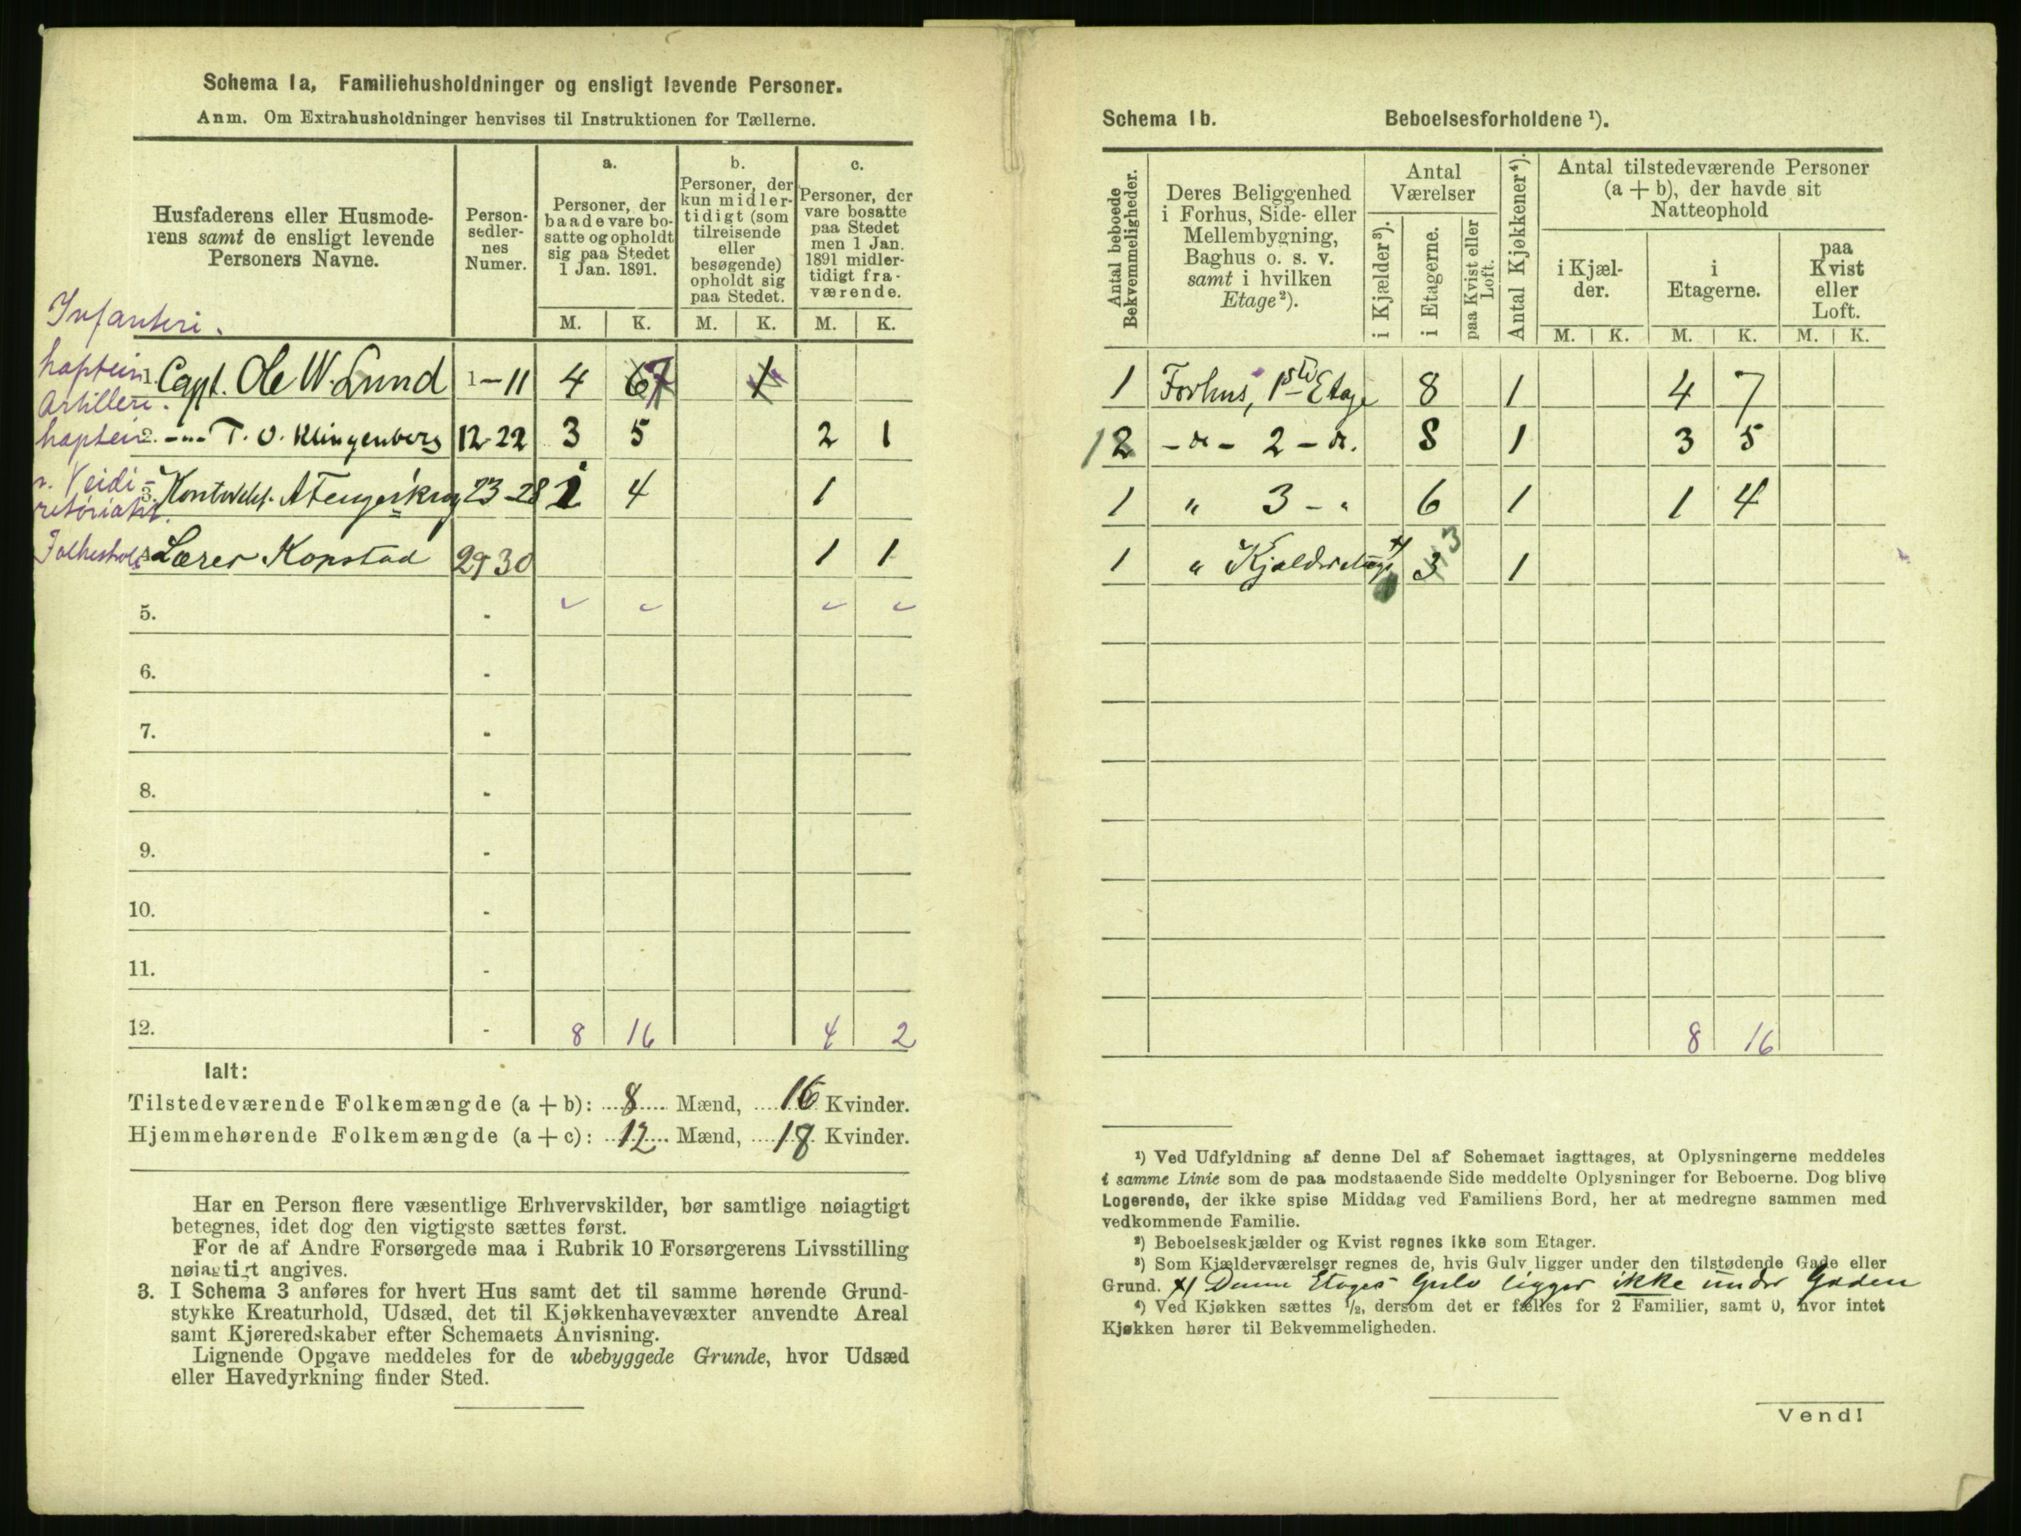 Schema 1a, Familiehusholdninger og ensligt levende Personer.
Anm. Om Extrahusholdninger henvises til Instruktionen for Tællerne.
Husfaderens eller Husmode-
rens samt de ensligt levende
Personers Navne.
Person-
sedler-
nes
Numer.
a.
Personer, der
baade vare bo-
satte og opholdt
sig paa Stedet
1 Jan. 1891.
b.
Personer, der
kun midler-
tidigt (som
tilreisende
eller
besøgende)
opholdt sig
paa Stedet.
c.
Personer, der
vare bosatte
paa Stedet
men 1 Jan.
1891 midler-
tidigt fra-
værende.
M. K. M. K. M. K.
Infanteri.
kaptein
1. Capt. Ole W. Lund 1-11 4 7
Artilleri.
kaptein 2. -"- T. O. Klingenberg 12-22 3 5 2 1
3. A Fengerkrog 23-28 1 4 1
Lærer Kopstad 29 30 1 1
5. -
6. -
7. -
8. -
9. -
10. -
11. -
12. - 8 16 4 2
Ialt:
Tilstedeværende Folkemængde (a + b): 8 Mænd, 16 Kvinder.
Hjemmehørende Folkemængde (a + c): 12 Mænd, 18 Kvinder.
Har en Person flere væsentlige Erhvervskilder, bør samtlige nøiagtigt
betegnes, idet dog den vigtigste sættes først.
For de af Andre Forsørgede maa i Rubrik 10 Forsørgerens Livsstilling
nøiagtigt angives.
3. I Schema 3 anføres for hvert Hus samt det til samme hørende Grund-
stykke Kreaturhold, Udsæd, det til Kjøkkenhavevæxter anvendte Areal
samt Kjøreredskaber efter Schemaets Anvisning.
Lignende Opgave meddeles for de ubebyggede Grunde, hvor Udsæd
eller Havedyrkning finder Sted.
Schema 1b. Beboelsesforholdene ¹).
Antal beboede
Bekvemmeligheder.
Deres Beliggenhed
i Forhus, Side- eller
Mellembygning,
Baghus o. s. v.
samt i hvilken
Etage²).
Antal
Værelser
i Kjælder³).
i Etagerne.
paa Kvist eller
Loft.
Antal Kjøkkener⁴).
Antal tilstedeværende Personer
(a + b), der havde sit
Natteophold
i Kjæl-
der.
i
Etagerne.
paa
Kvist
eller
Loft.
M. K. M. K. M. K.
1 Forhus, 1ste Etage 8 1 4 7
1 -do- 2 - do. 8 1 3 5
1 " 3 - " 6 1 1 4
1 " Kjælderetage x) 3 1
8 16
¹) Ved Udfyldning af denne Del af Schemaet iagttages, at Oplysningerne meddeles
i samme Linie som de paa modstaaende Side meddelte Oplysninger for Beboerne. Dog blive
Logerende, der ikke spise Middag ved Familiens Bord, her at medregne sammen med
vedkommende Familie.
²) Beboelseskjælder og Kvist regnes ikke som Etager.
³) Som Kjælderværelser regnes de, hvis Gulv ligger under den tilstødende Gade eller
Grund. x) Denne Etages Gulv ligger ikke under Gaden
⁴) Ved Kjøkken sættes ½, dersom det er fælles for 2 Familier, samt 0, hvor intet
Kjøkken hører til Bekvemmeligheden.
Vend!